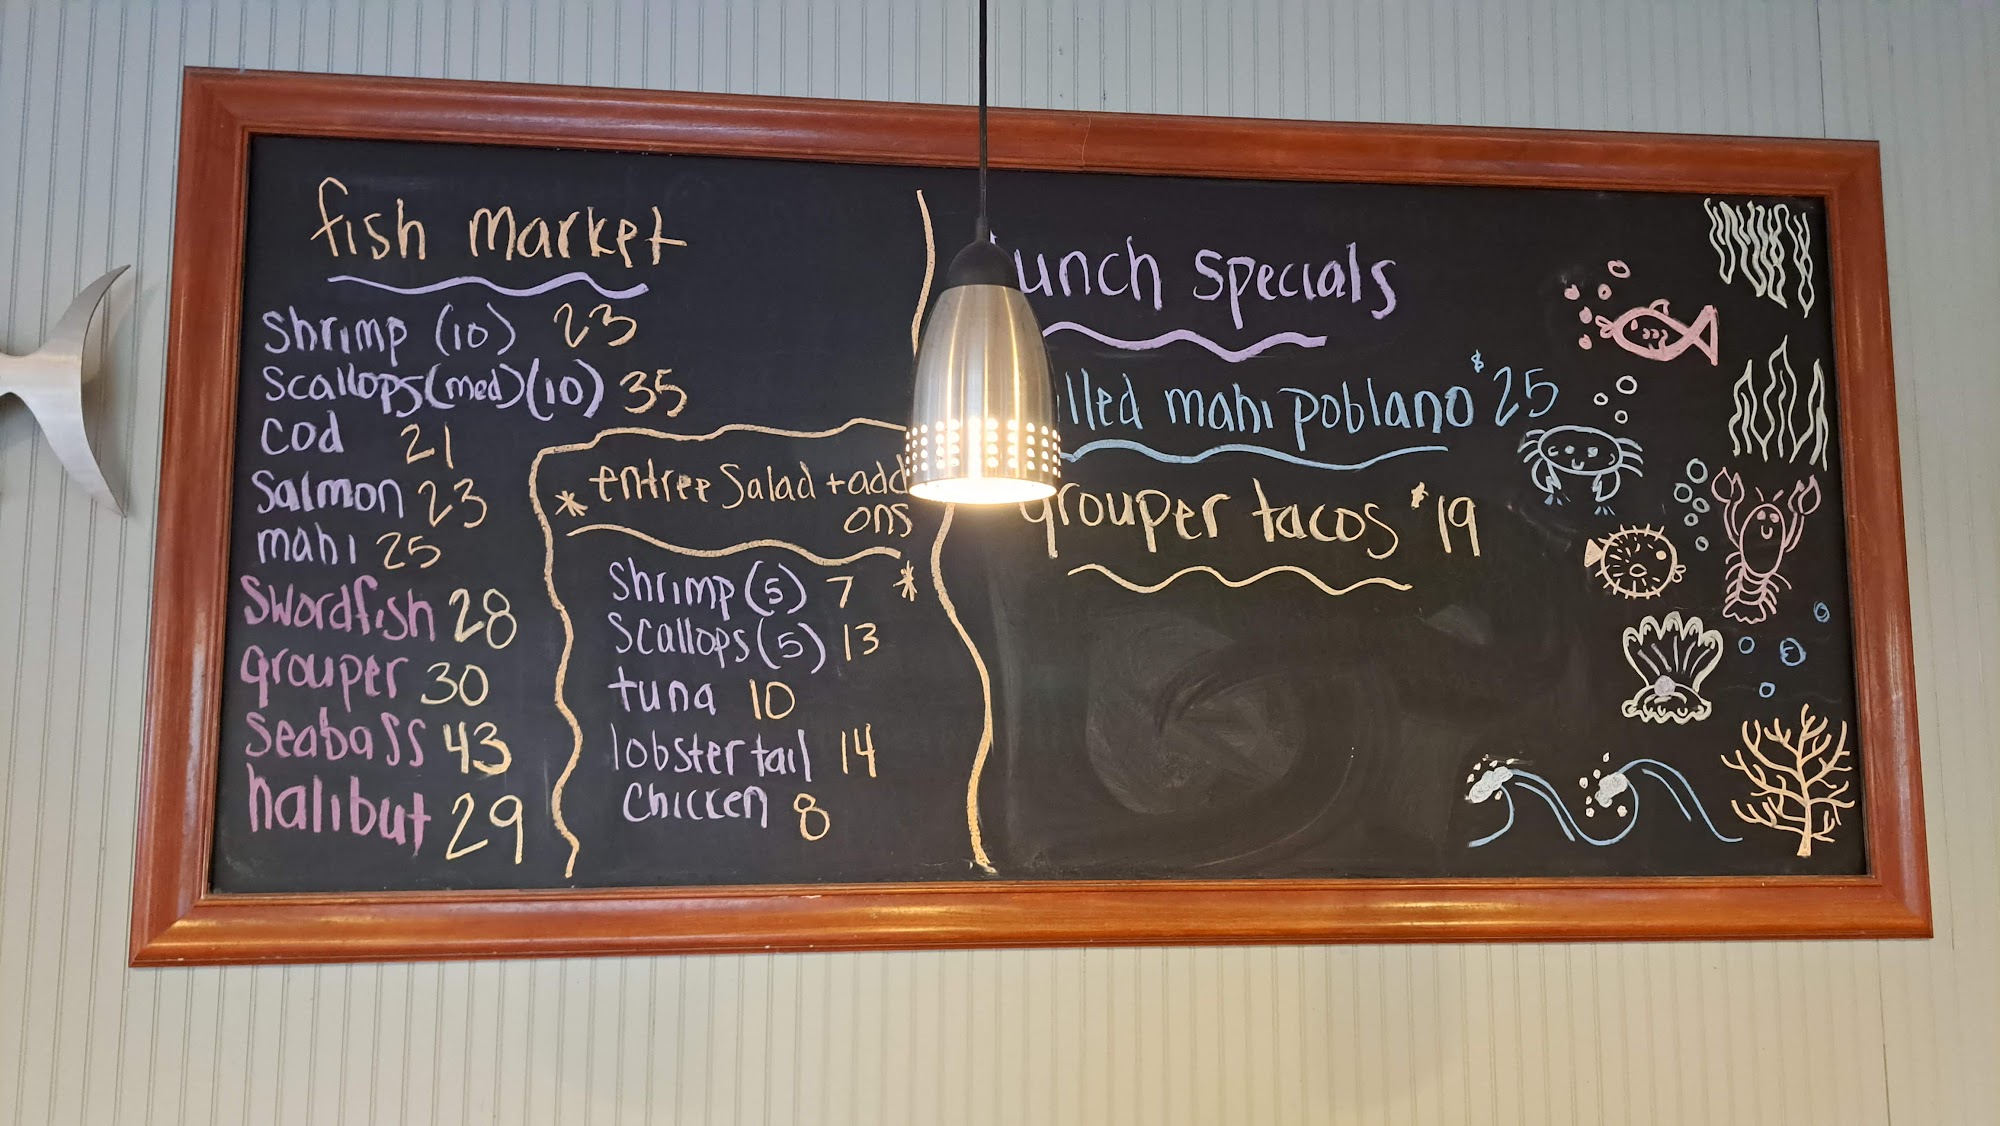 fish market
Shrimp (10) 23
Scallops(med)(10) 35
Cod 21
Salmon 23
mahi 25
Swordfish 28
grouper 30
Seabass 43
halibut 29
* entree Salad + add
ons
*
Shrimp (5) 7
Scallops (5) 13
tuna 10
lobster tail 14
Chicken 8
lunch specials
mahi poblano $25
grouper tacos $19